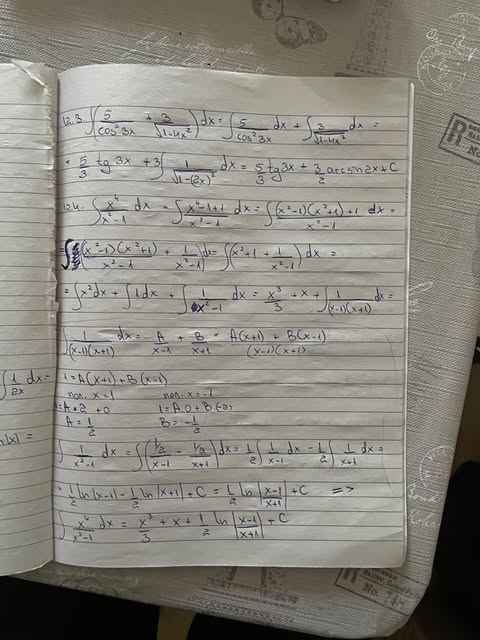 12.3. ∫(5/cos²3x + 3/√(1-4x²)) dx = ∫ 5/cos²3x dx + ∫ 3/√(1-4x²) dx =
= 5/3 tg 3x + 3∫ 1/√(1-(2x)²) dx = 5/3 tg 3x + 3/2 arcsin 2x + C
12.4. ∫ x⁴/(x²-1) dx = ∫ (x⁴-1+1)/(x²-1) dx = ∫ ((x²-1)(x²+1)+1)/(x²-1) dx =
= ∫((x²-1)(x²+1)/(x²-1) + 1/(x²-1)) dx = ∫(x²+1+1/(x²-1)) dx =
= ∫x² dx + ∫1 dx + ∫ 1/(x²-1) dx = x³/3 + x + ∫ 1/((x-1)(x+1)) =
∫ 1/((x-1)(x+1)) dx = A/(x-1) + B/(x+1) = (A(x+1) + B(x-1))/((x-1)(x+1))
∫ 1/2x dx =
1 = A(x+1) + B(x-1)
x=1
x=-1
1=A·2+0
1=A·0+B(-2)
A=1/2
B=-1/2
ln|x| =
∫ 1/(x²-1) dx = ∫((1/2)/(x-1) - (1/2)/(x+1)) dx = 1/2 ∫ 1/(x-1) dx - 1/2 ∫ 1/(x+1) dx =
= 1/2 ln|x-1| - 1/2 ln|x+1| + C = 1/2 ln|(x-1)/(x+1)| + C =>
∫ x⁴/(x²-1) dx = x³/3 + x + 1/2 ln|(x-1)/(x+1)| + C